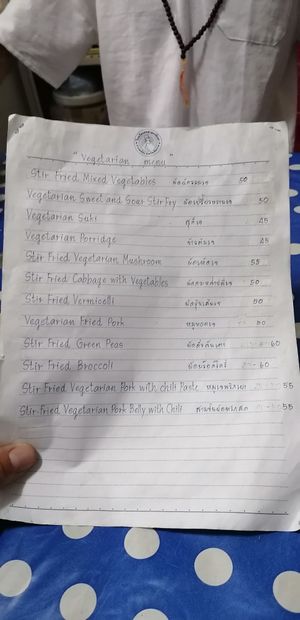 "Vegetarian menu"
Stir Fried Mixed Vegetables ผัดผักรวมเจ 50
Vegetarian Sweet and Sour Stir Fry ผัดเปรี้ยวหวานเจ 50
Vegetarian Suki สุกี้เจ 45
Vegetarian Porridge ข้าวต้มเจ 45
Stir Fried Vegetarian Mushroom ผัดเห็ดเจ 55
Stir Fried Cabbage with Vegetables 50
Stir Fried Vermicelli ผัดวุ้นเส้นเจ 50
Vegetarian Fried Pork หมูทอดเจ 50
Stir Fried Green Peas ผัดถั่วลันเตา 60
Stir Fried Broccoli ผัดบร็อคโคลี่ 60
Stir Fried Vegetarian Pork with chili Paste 55
Stir Fried Vegetarian Pork Belly with Chili 55